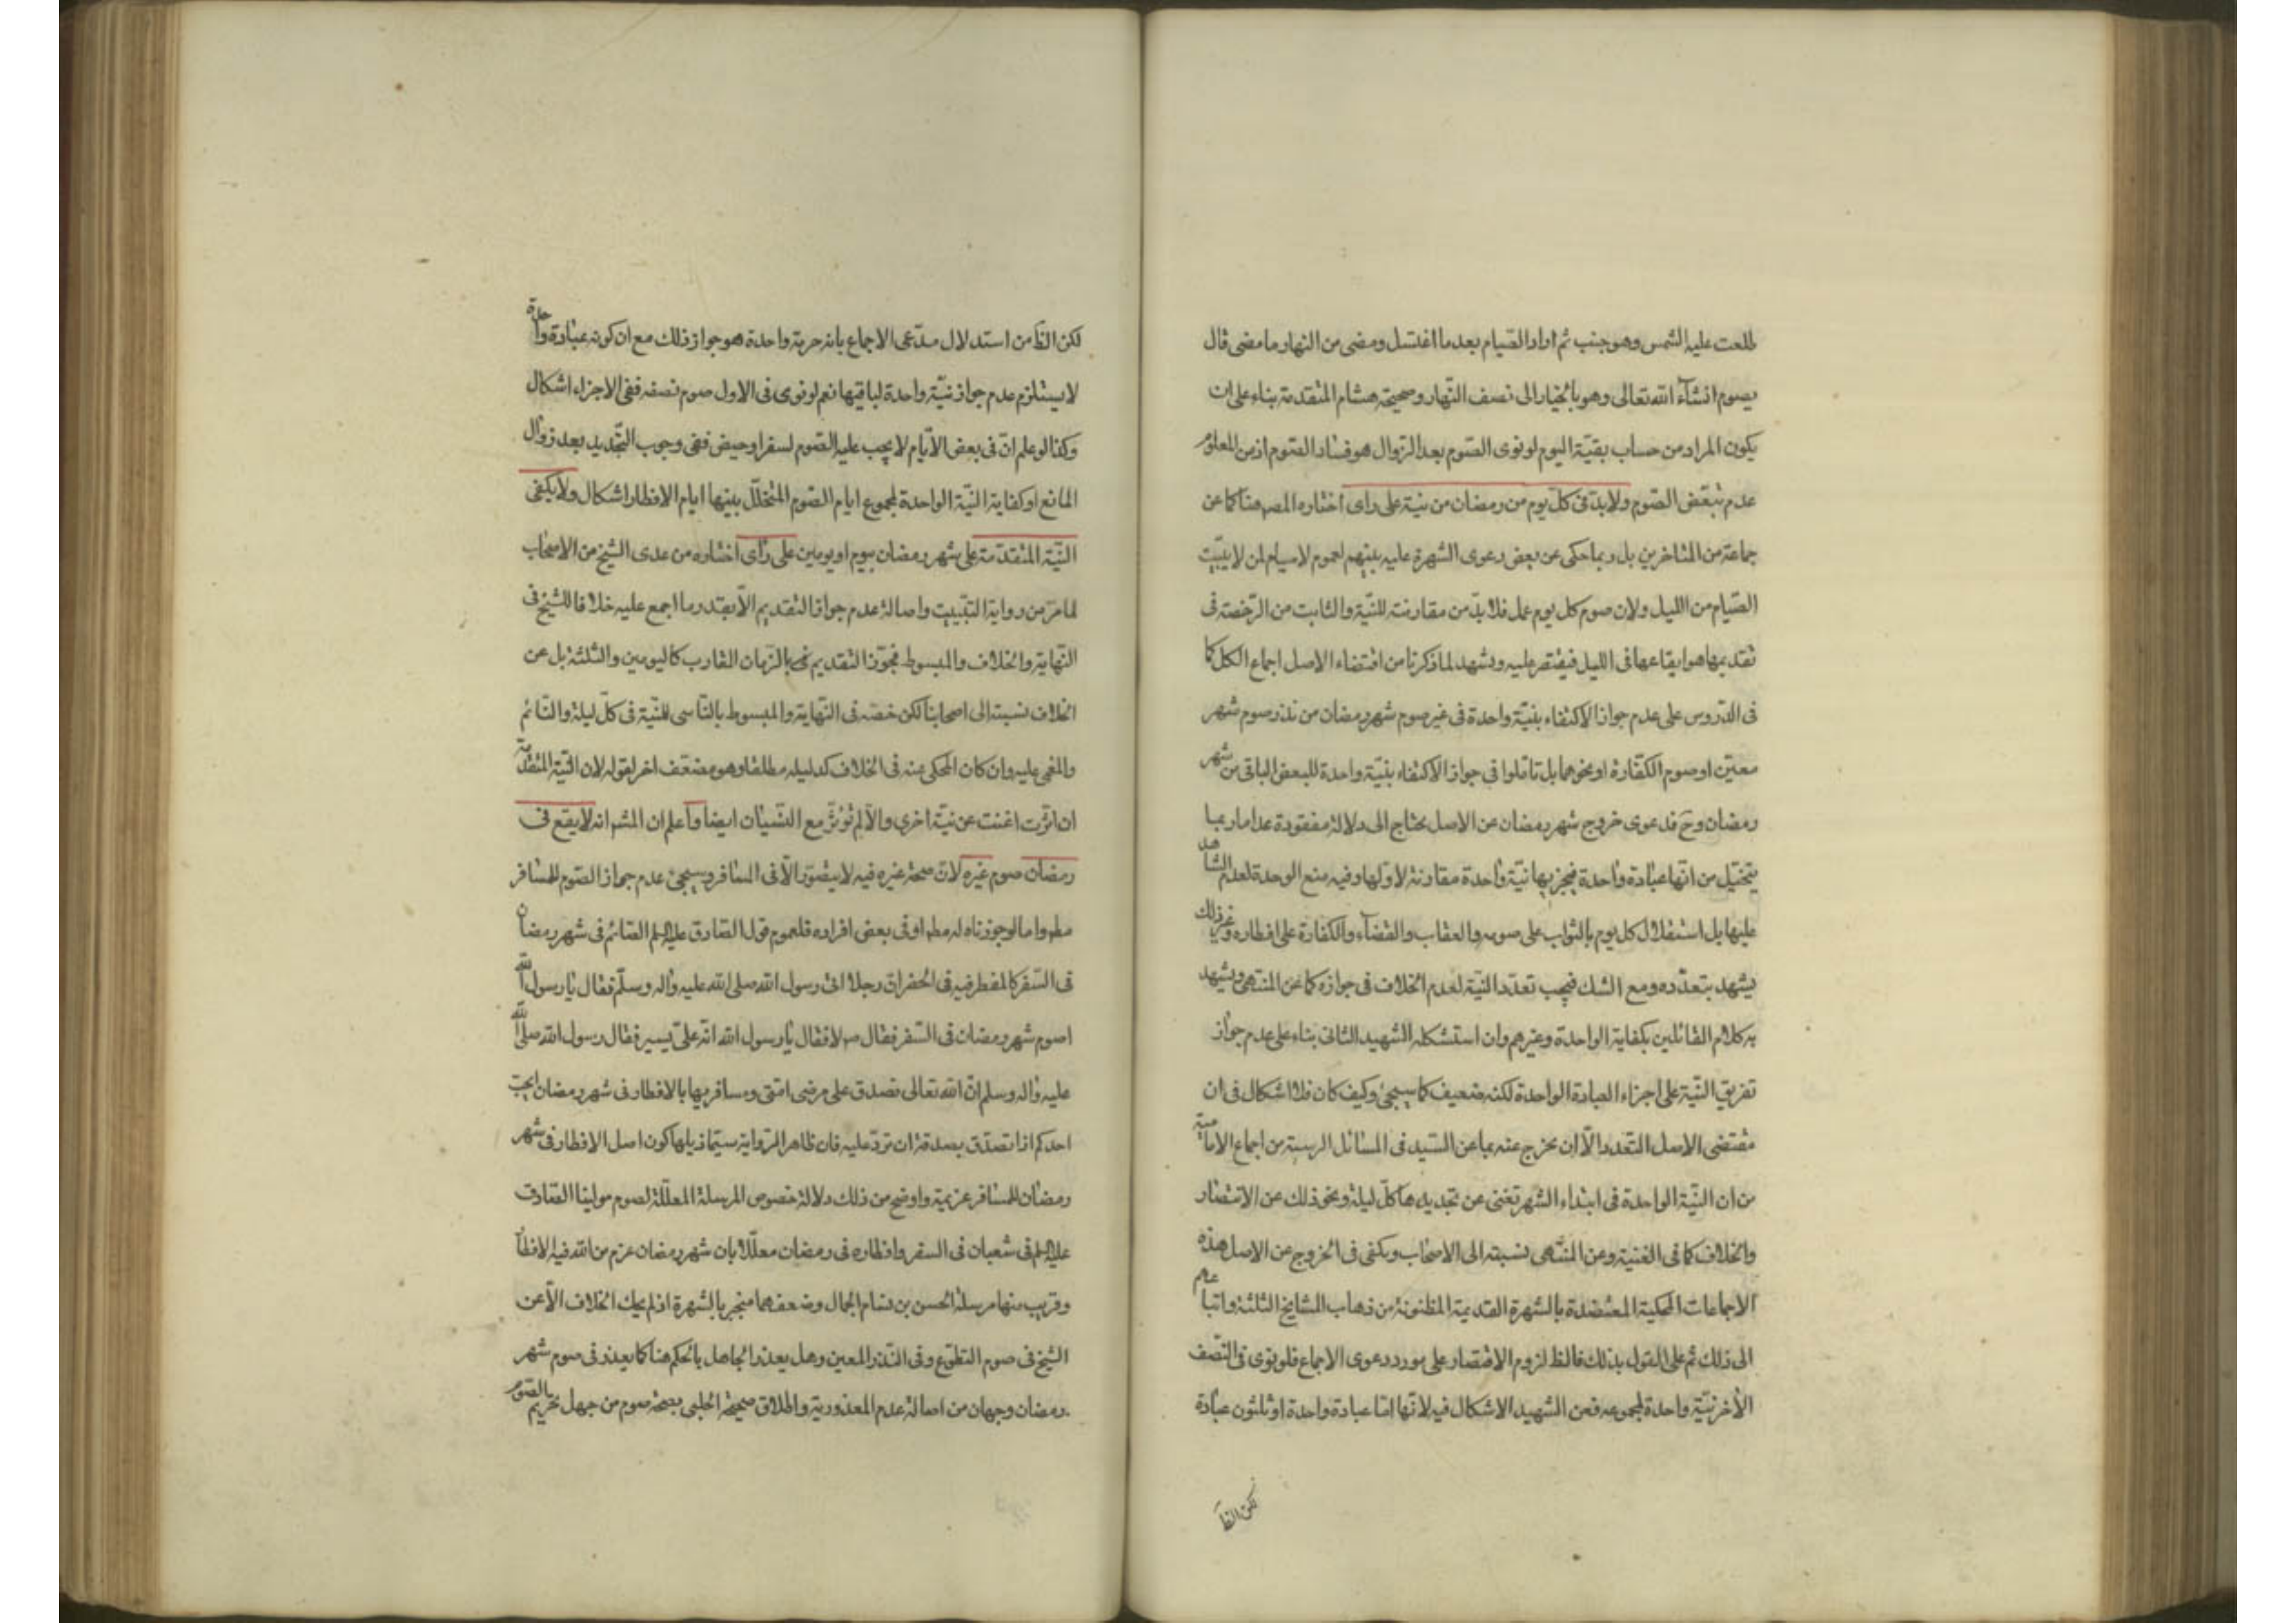 طلعت عليه الشمس وهو جنب ثم اراد الصيام بعد ما اغتسل ومضى من النهار ما مضى قال
يصوم انشآء الله تعالى وهو بالخيار الى نصف النّهار وصحيحة هشام المتقدمة بناء على ان
يكون المراد من حساب بقيّة اليوم لو نوى الصّوم بعد الزوال هو فساد الصّوم اذ من المعلوم
عدم تبعّض الصّوم ولا بدّ فى كلّ يوم من رمضان من نيّة على راى اختاره المصـ هنا كما عن
جماعة من المتاخرين بل ربما حكى عن بعض دعوى الشهرة عليه بينهم لعموم لا صيام لمن لا يبيّت
الصّيام من الليل ولان صوم كل يوم عمل فلا بدّ من مقارنته للنيّة والثابت من الرّخصة فى
تقديمها هو ايقاعها فى الليل فيقتصر عليه ويشهد لما ذكرنا من اقتضاء الاصل اجماع الكل كما
فى الدّروس على عدم جواز الاكتفاء بنيّة واحدة فى غير صوم شهر رمضان من نذر صوم شهر
معيّن او صوم الكفّارة او نحوهما بل تاملوا فى جواز الاكتفاء بنيّة واحدة للبعض الباقى من شهر
رمضان وح فدعوى خروج شهر رمضان عن الاصل يحتاج الى دلالة مفقودة عدا ما ربما
يتخيّل من انّها عبادة واحدة فيجزيها نيّة واحدة مقارنة لاوّلها وفيه منع الوحدة لعدم الشاهد
عليها بل استقلال كل يوم بالثواب على صومه والعقاب والقضآء والكفارة على افطاره وغير ذلك
يشهد بتعدّده ومع الشك فيجب تعدّد النيّة لعدم الخلاف فى جوازه كما عن المنتهى ويشهد
به كلام القائلين بكفاية الواحدة وغيرهم وان استشكله الشهيد الثانى بناء على عدم جواز
تفريق النّيّة على اجزاء العبادة الواحدة لكنه ضعيف كما سيجئ وكيف كان فلا اشكال فى ان
مقتضى الاصل التّعدد الّا ان يخرج عنه بما عن السّيد فى المسائل الرسية من اجماع الاماميّة
من ان النيّة الواحدة فى ابتداء الشهر تغنى عن تجديدها كلّ ليلة ونحو ذلك عن الانتصار
والخلاف كما فى الغنية وعن المنتهى نسبته الى الاصحاب ويكفى فى الخروج عن الاصل هذه
الاجماعات المحكية المعتضدة بالشهرة القديمة المظنونة من ذهاب المشايخ الثلثة واتباعهم
الى ذلك ثم على القول بذلك فالظ لزوم الاقتصار على مورد دعوى الاجماع فلو نوى فى النّصف
الأخر نيّة واحدة لمجموعه فعن الشهيد الاشكال فيه لانّها امّا عبادة واحدة او ثلثون عبادة
لكن الظ
لكن الظ من استدلال مدّعى الاجماع بانه حرمة واحدة هو جواز ذلك مع ان كونه عبادة واحدة
لا يستلزم عدم جواز نيّة واحدة لباقيها نعم لو نوى فى الاول صوم نصفه ففى الاجزاء اشكال
وكذا لو علم انّ فى بعض الأيّام لا يجب عليه الصّوم لسفر او حيض ففى وجوب التجديد بعد زوال
المانع او كفاية النيّة الواحدة لمجموع ايام الصّوم المتخلّل بينها ايام الافطار اشكال ولا يكفى
النيّة المتقدّمة على شهر رمضان بيوم او يومين على رأى اختاره من عدى الشيخ من الاصحاب
لما مرّ من رواية التبييت واصالة عدم جواز التقديم الّا بقدر ما اجمع عليه خلافا للشيخ فى
النّهاية والخلاف والمبسوط فجوّز التقديم فى الزّمان القارب كاليومين والثلثة بل عن
الخلاف نسبته الى اصحابنا لكن خصّه فى النّهاية والمبسوط بالنّاسى للنّيّة فى كلّ ليلة والنّائم
والمغمى عليه وان كان المحكى عنه فى الخلاف كدليله مطلقا وهو مضعّف اخر لقوله لان النّيّة المتقدّمة
ان اثّرت اغنت عن نيّة اخرى والّا لم تؤثّر مع النّسيان ايضا واعلم ان المشهـ انه لا يقع فى
رمضان صوم غيره لانّ صحة غيره فيه لا يتصوّر الّا فى المسافر وسيجئ عدم جواز الصّوم للمسافر
مطـ واما لو جوزناه له مطـ او فى بعض افراده فلعموم قول الصّادق عليه السلم الصّائم فى شهر رمضان
فى السّفر كالمفطر فيه فى الحضر انّ رجلا اتى رسول الله صلى الله عليه واله وسلّم فقال يا رسول الله
اصوم شهر رمضان فى السّفر فقال صـ لا فقال يا رسول الله انّه علىّ يسير فقال رسول الله صلى الله
عليه واله وسلم انّ الله تعالى تصدق على مرضى امّتى ومسافريها بالافطار فى شهر رمضان ايحبّ
احدكم اذا تصدّق بصدقة ان تردّ عليه فان ظاهر الرّواية سيّما ذيلها كون اصل الافطار فى شهر
رمضان للمسافر عزيمة واوضح من ذلك دلالة خصوص المرسلة المعلّلة لصوم مولينا الصّادق
عليه السلم فى شعبان فى السفر وافطاره فى رمضان معلّلا بان شهر رمضان عزم من الله فيه الافطار
وقريب منها مرسلة الحسن بن بسام الجمال وضعفهما منجبر بالشهرة اذ لم يحك الخلاف الّا عن
الشيخ فى صوم التطوّع وفى النّذر المعين وهل يعذر الجاهل بالحكم هنا كما يعذر فى صوم شهر
رمضان وجهان من اصالة عدم المعذورية واطلاق صحيحة الحلبى بصحّة صوم من جهل تحريم الصّوم